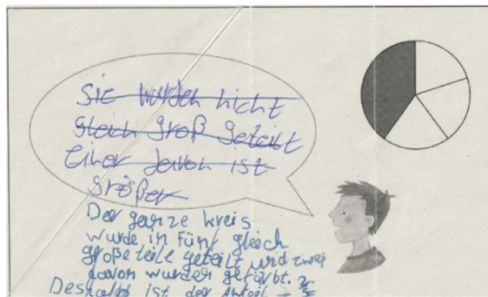 Sie wurden nicht
gleich groß geteilt
einer davon ist
größer
Der ganze kreis
wurde in fünf gleich
große teile geteilt und zwei
davon wurden gefärbt.
Deshalb ist der Anteil = 2/5